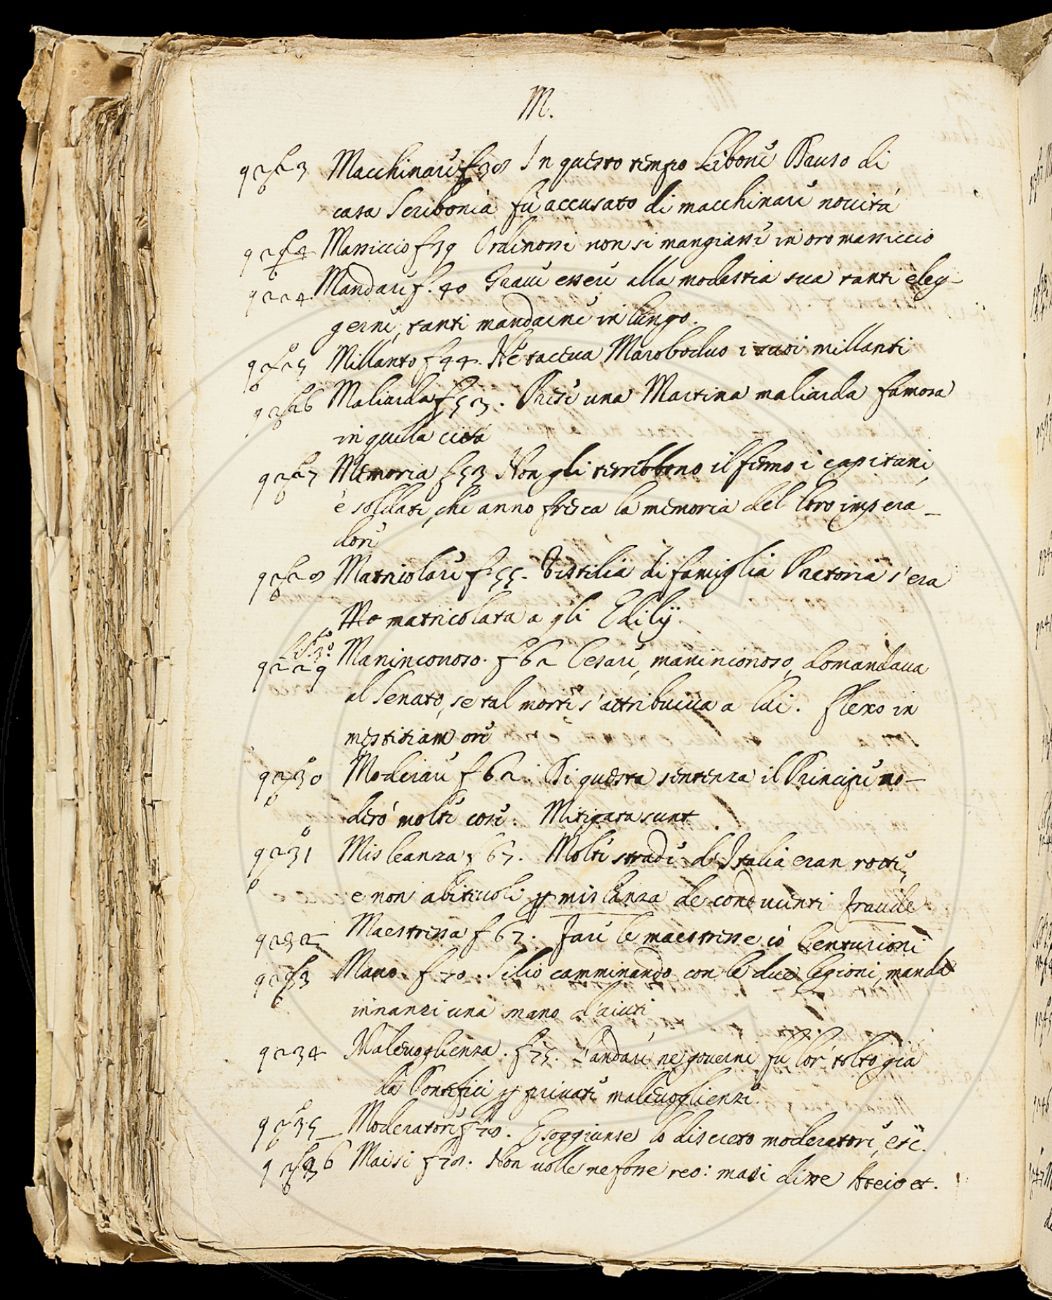 M.
Macchinare f. 38 In questo tempo Libone Druso di
casa Scribonia fù accusato di macchinare novità
Massiccio f 39 Ordinossi non si mangiasse in oro massiccio
Mandare f. 40 Grave essere alla modestia sua tanti eleg-
gerne, tanti mandarne in lungo.
Millanto f 44. Nè taceva Maroboduo i suoi millanti
Maliarda f 53. Prese una Martina maliarda famosa
in quella città
Memoria f 53 Non gli terrebbono il fermo i capitani,
e soldati, che anno fresca la memoria del loro impera-
dore
Matricolare f. 55. Vistilia di famiglia Pretoria s'era
matricolata a gli Edilij.
Maninconoso. f 62 Cesare, maninconoso, domandava
al Senato, se tal morte s'attribuiva a lui. Flexo in
mestitiam ore
Moderare f 62. Di questa sentenza il Principe mo-
derò molte cose. Mitigata sunt
Misleanza f 67. Molte strade d'Italia eran rotte,
e non abitevoli p misleanza de conducenti fraude
Maestrissa f 67. Fare le maestrisse cò Centurioni
Mano. f. 70. Silio camminando con le due legioni, manda
innanzi una mano d'aiuti
Malevoglienza. f 75. L'andare ne governi fù lor tolto già
da Pontefici p private malevoglienze.
Moderatore f 78. Soggiunse lo discreto moderatore, etc.
Maisi f 78. Non volle ne fosse reo: masi disse Ateio et.